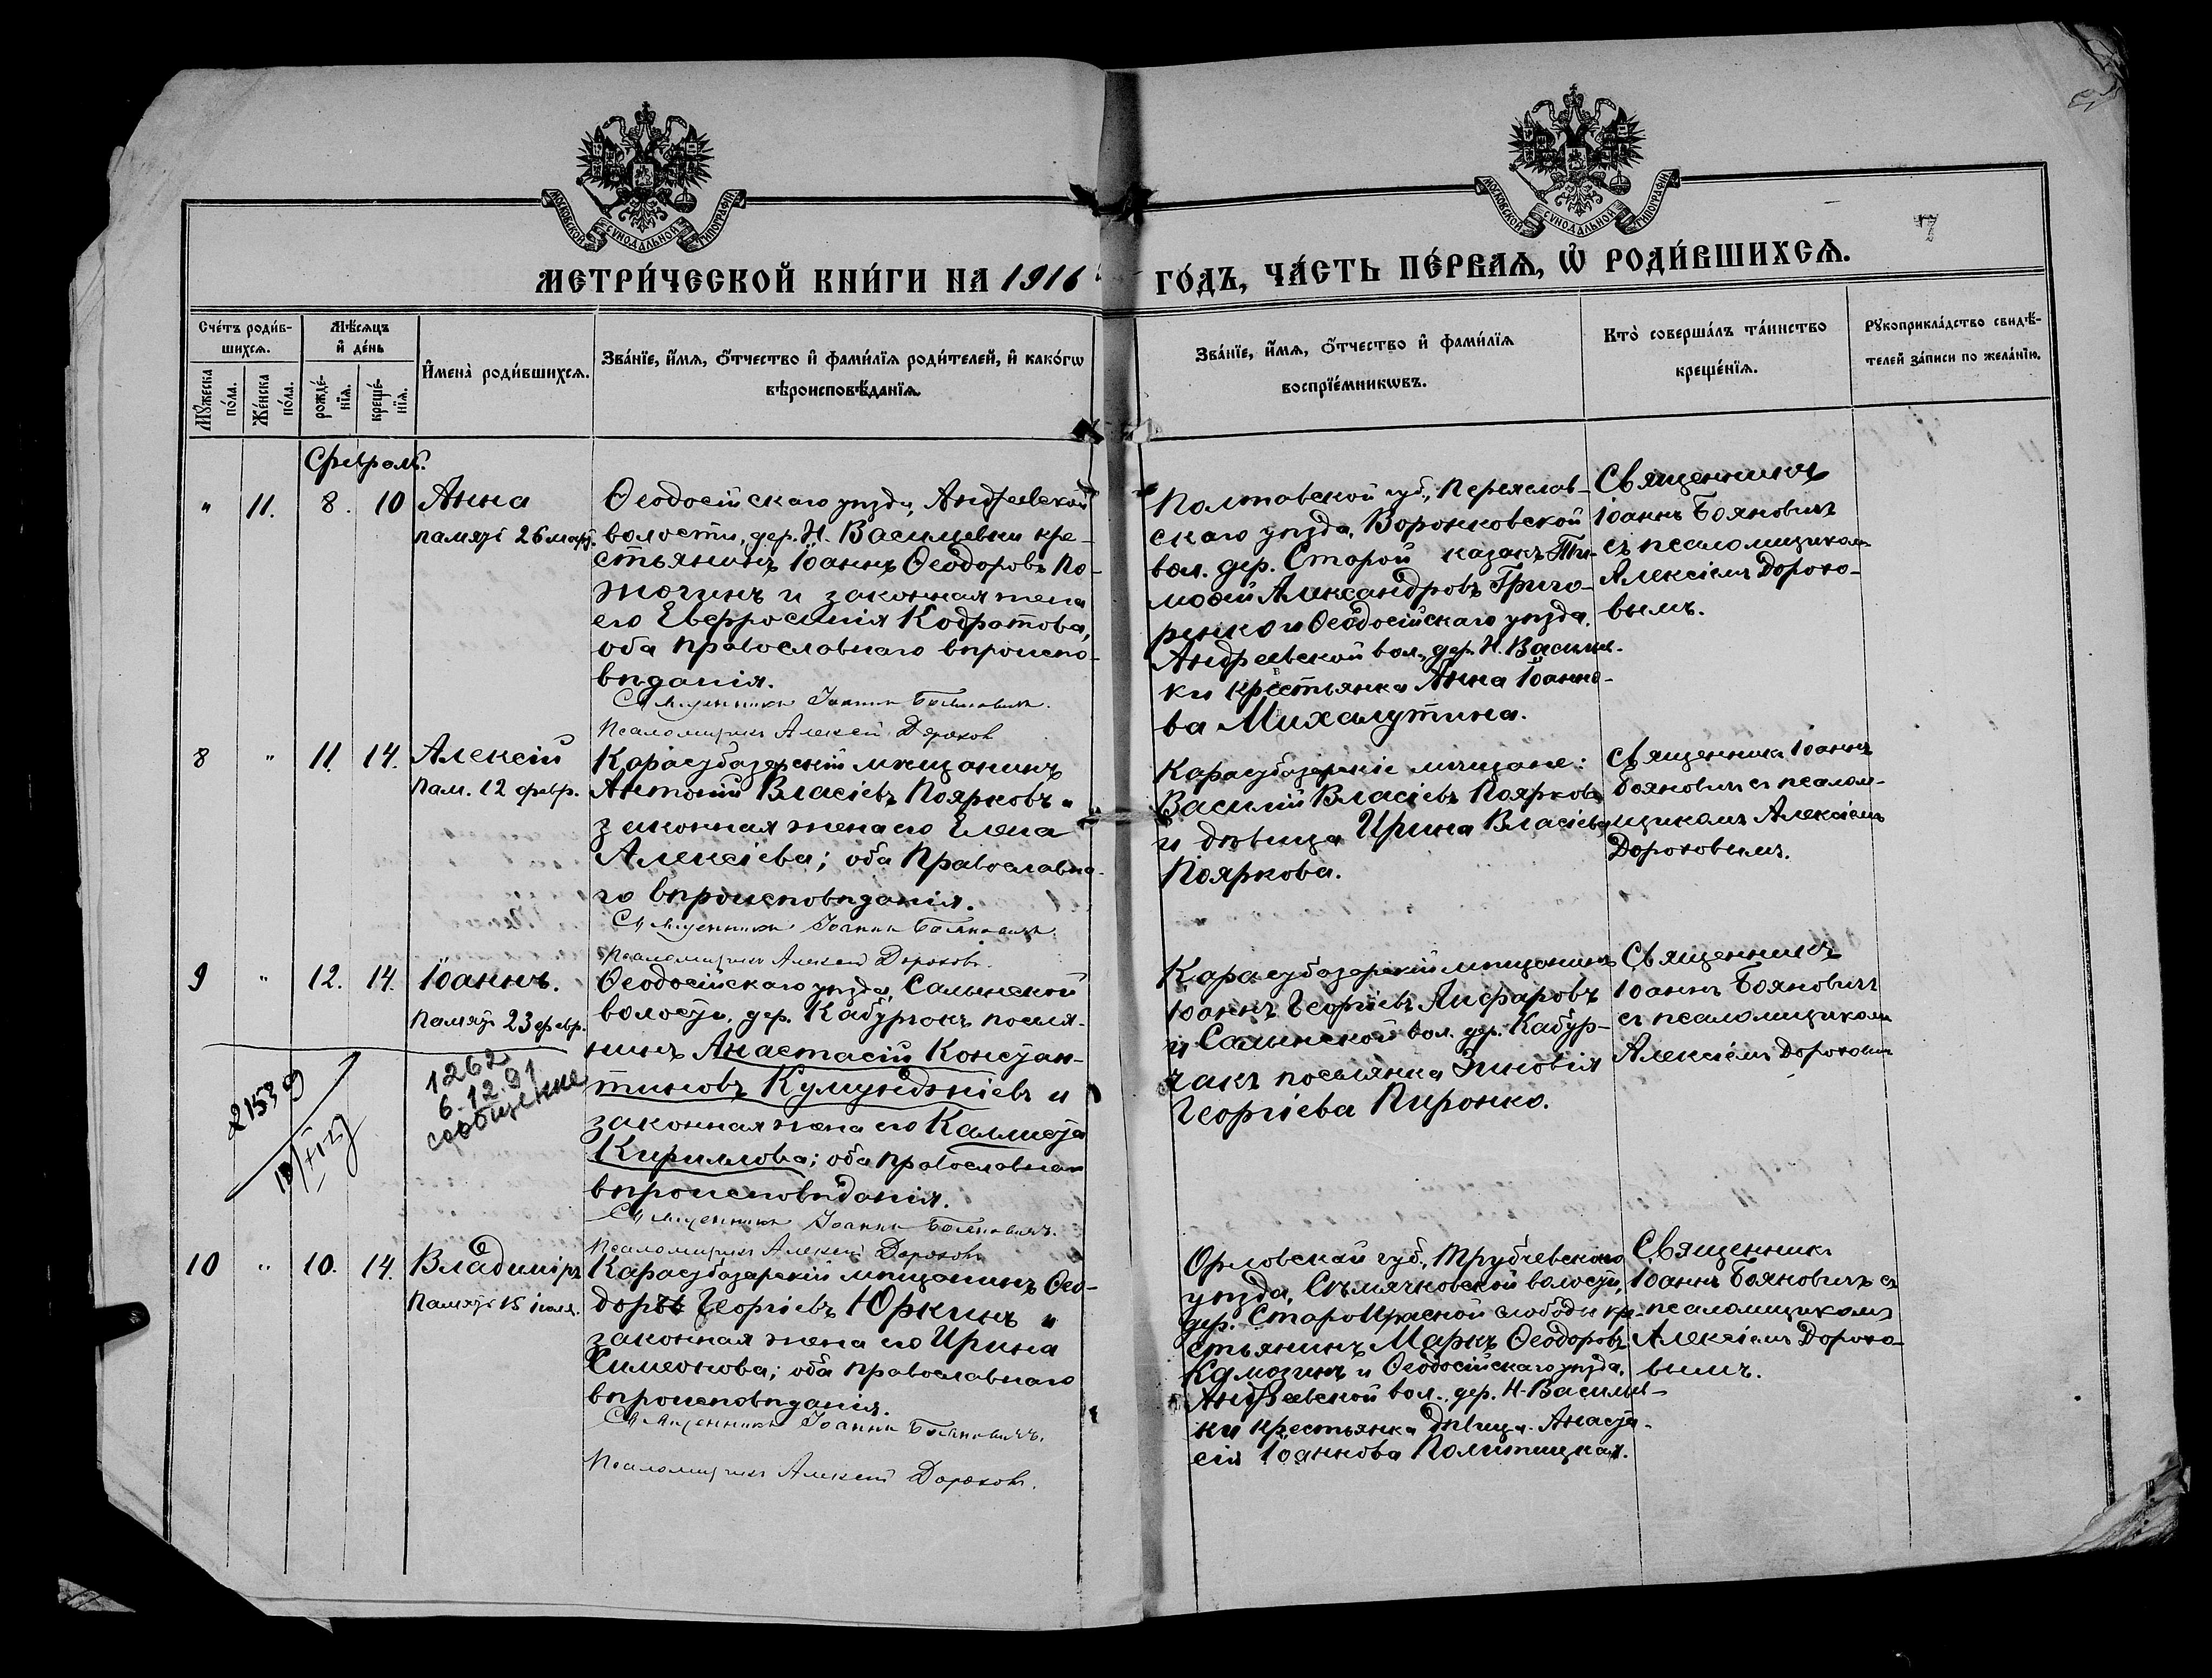 МОСКОВСКОЙ СѴНОДАЛЬНОЙ ТИПОГРАФІИ
МОСКОВСКОЙ СѴНОДАЛЬНОЙ ТИПОГРАФІИ
7
МЕТРИ́ЧЕСКОЙ КНИ́ГИ НА 1916 ГО́ДЪ, ЧА́СТЬ ПЕ́РВАѦ, Ѡ҆ РОДИ́ВШИХСѦ.
Сче́тъ роди́в-
шихсѧ.
Мꙋ́жеска
по́ла.
Же́нска
по́ла.
Мѣ́сѧцъ
и҆ де́нь
рожде́-
нїѧ.
креще́-
нїѧ.
И҆мена̀ роди́вшихсѧ.
Зва́нїе, и҆́мѧ, ѻ҆́тчество и҆ фами́лїѧ роди́телей, и҆ како́гѡ
вѣроисповѣ́данїѧ.
Зва́нїе, и҆́мѧ, ѻ҆́тчество и҆ фами́лїѧ
воспрїе́мникѡвъ.
Кто̀ соверша́лъ та́инство
креще́нїѧ.
Рꙋкоприкла́дство свидѣ́-
телей за́писи по жела́нїю.
Февраль.
" 11. 8. 10 Анна
память 26 март.
Ѳеодосійскаго уѣзда, Андреевской
волости, дер. Н. Васильевки кре-
стьянинъ Іоаннъ Ѳеодоровъ По-
жогинъ и законная жена
его Евфросинія Кодратова,
оба православнаго вѣроиспо-
вѣданія.
Священникъ Іоаннъ Бояновичъ.
Псаломщикъ Алексей Дорохов
Полтавской губ., Переяслав-
скаго уѣзда, Воронковской
вол. дер. Старой казакъ Ти-
моѳей Александровъ Григо-
ренко и Ѳеодосійскаго уѣзда,
Андреевской вол., дер. Н. Васильев-
ки крестьянка Анна Іоанно-
ва Михалутина.
Священникъ
Іоаннъ Бояновичъ
съ псаломщикомъ
Алексіемъ Дорохо-
вымъ.
8 " 11. 14. Алексій
пам. 12 февр.
Карасубазарскій мѣщанинъ
Антоній Власіевъ Поярковъ и
законная жена его Елена
Алексіева; оба православна-
го вѣроисповѣданія.
Священникъ Іоаннъ Бояновичъ
Псаломщикъ Алексей Дороховъ.
Карасубазарскіе мѣщане:
Василій Власіевъ Поярковъ
и дѣвица Ирина Власіева
Пояркова.
Священникъ Іоаннъ
Бояновичъ съ псалом-
щикомъ Алексіемъ
Дороховымъ.
9 " 12. 14. Іоаннъ.
Память 23 февр.
21539
1262
6.12.91
сообщение
Ѳеодосійскаго уѣзда, Салынской
волости, дер. Кабурчакъ поселя-
нинъ Анастасій Констан-
тиновъ Кумунджіевъ и
законная жена его Каллиста
Кириллова; оба православнаго
вѣроисповѣданія.
Священникъ Іоаннъ Бояновичъ.
Псаломщикъ Алексей Дороховъ
Карасубазарскій мѣщанинъ
Іоаннъ Георгіевъ Анфаровъ
и Салынской вол. дер. Кабур-
чакъ поселянка Зиновія
Георгіева Пиронко.
Священникъ
Іоаннъ Бояновичъ
съ псаломщикомъ
Алексіемъ Дороховымъ
10 " 10. 14. Владиміръ
Память 15 іюля.
Карасубазарскій мѣщанинъ Ѳео-
доръ Георгіевъ Юркинъ и
законная жена его Ирина
Симеонова; оба православнаго
вѣроисповѣданія.
Священникъ Іоаннъ Бояновичъ.
Псаломщикъ Алексей Дороховъ.
Орловской губ., Трубчевскаго
уѣзда, Семячковской волости,
дер. Староп красной слободы кре-
стьянинъ Маркъ Ѳеодоровъ
Камозинъ и Ѳеодосійскаго уѣзда,
Андреевской вол. дер. Н-Васильев-
ки крестьянка дѣвица Анаста-
сія Іоаннова Политицкая.
Священникъ
Іоаннъ Бояновичъ съ
псаломщикомъ
Алексіемъ Дорохо-
вымъ.